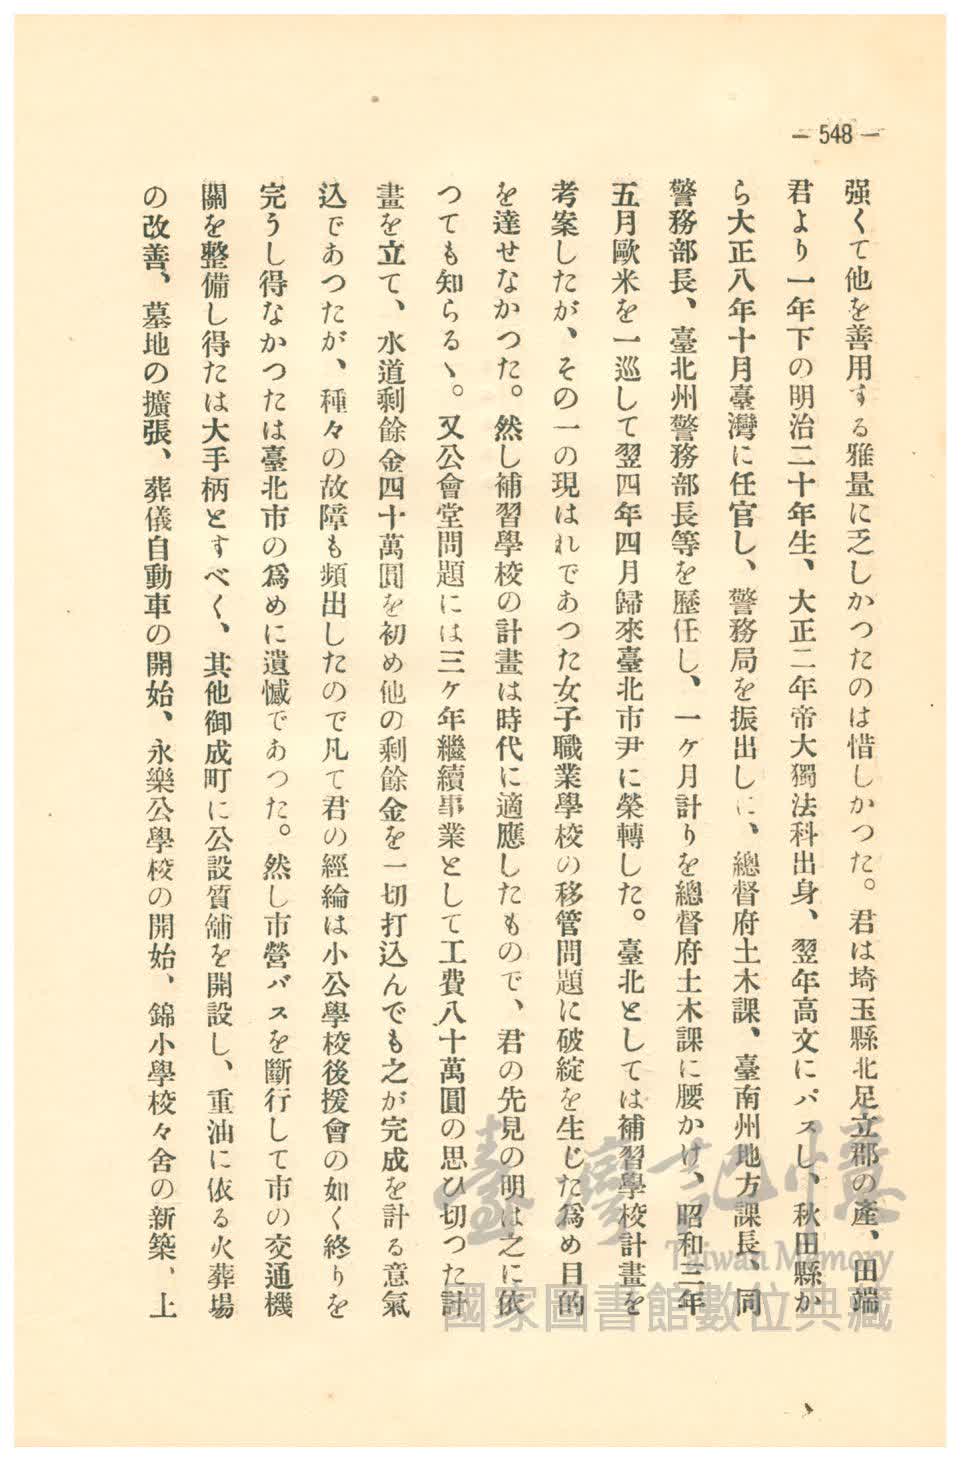 — 548 —
强くて他を善用する雅量に乏しかつたのは惜しかつた。君は埼玉縣北足立郡の產、田端
君より一年下の明治二十年生、大正二年帝大獨法科出身、翌年高文にパスし、秋田縣か
ら大正八年十月臺灣に任官し、警務局を振出しに、總督府土木課、臺南州地方課長、同
警務部長、臺北州警務部長等を歷任し、一ケ月計りを總督府土木課に腰かけ、昭和三年
五月歐米を一巡して翌四年四月歸來臺北市尹に榮轉した。臺北としては補習學校計畫を
考案したが、その一の現はれであつた女子職業學校の移管問題に破綻を生じた爲め目的
を達せなかつた。然し補習學校の計畫は時代に適應したもので、君の先見の明は之に依
つても知らるゝ。又公會堂問題には三ケ年繼續事業として工費八十萬圓の思ひ切つた計
畫を立て、水道剩餘金四十萬圓を初め他の剩餘金を一切打込んでも之が完成を計る意氣
込であつたが、種々の故障も頻出したので凡て君の經綸は小公學校後援會の如く終りを
完うし得なかつたは臺北市の爲めに遺憾であつた。然し市營バスを斷行して市の交通機
關を整備し得たは大手柄とすべく、其他御成町に公設質舖を開設し、重油に依る火葬場
の改善、墓地の擴張、葬儀自動車の開始、永樂公學校の開始、錦小學校々舍の新築、上
臺灣記憶
Taiwan Memory
國家圖書館數位典藏